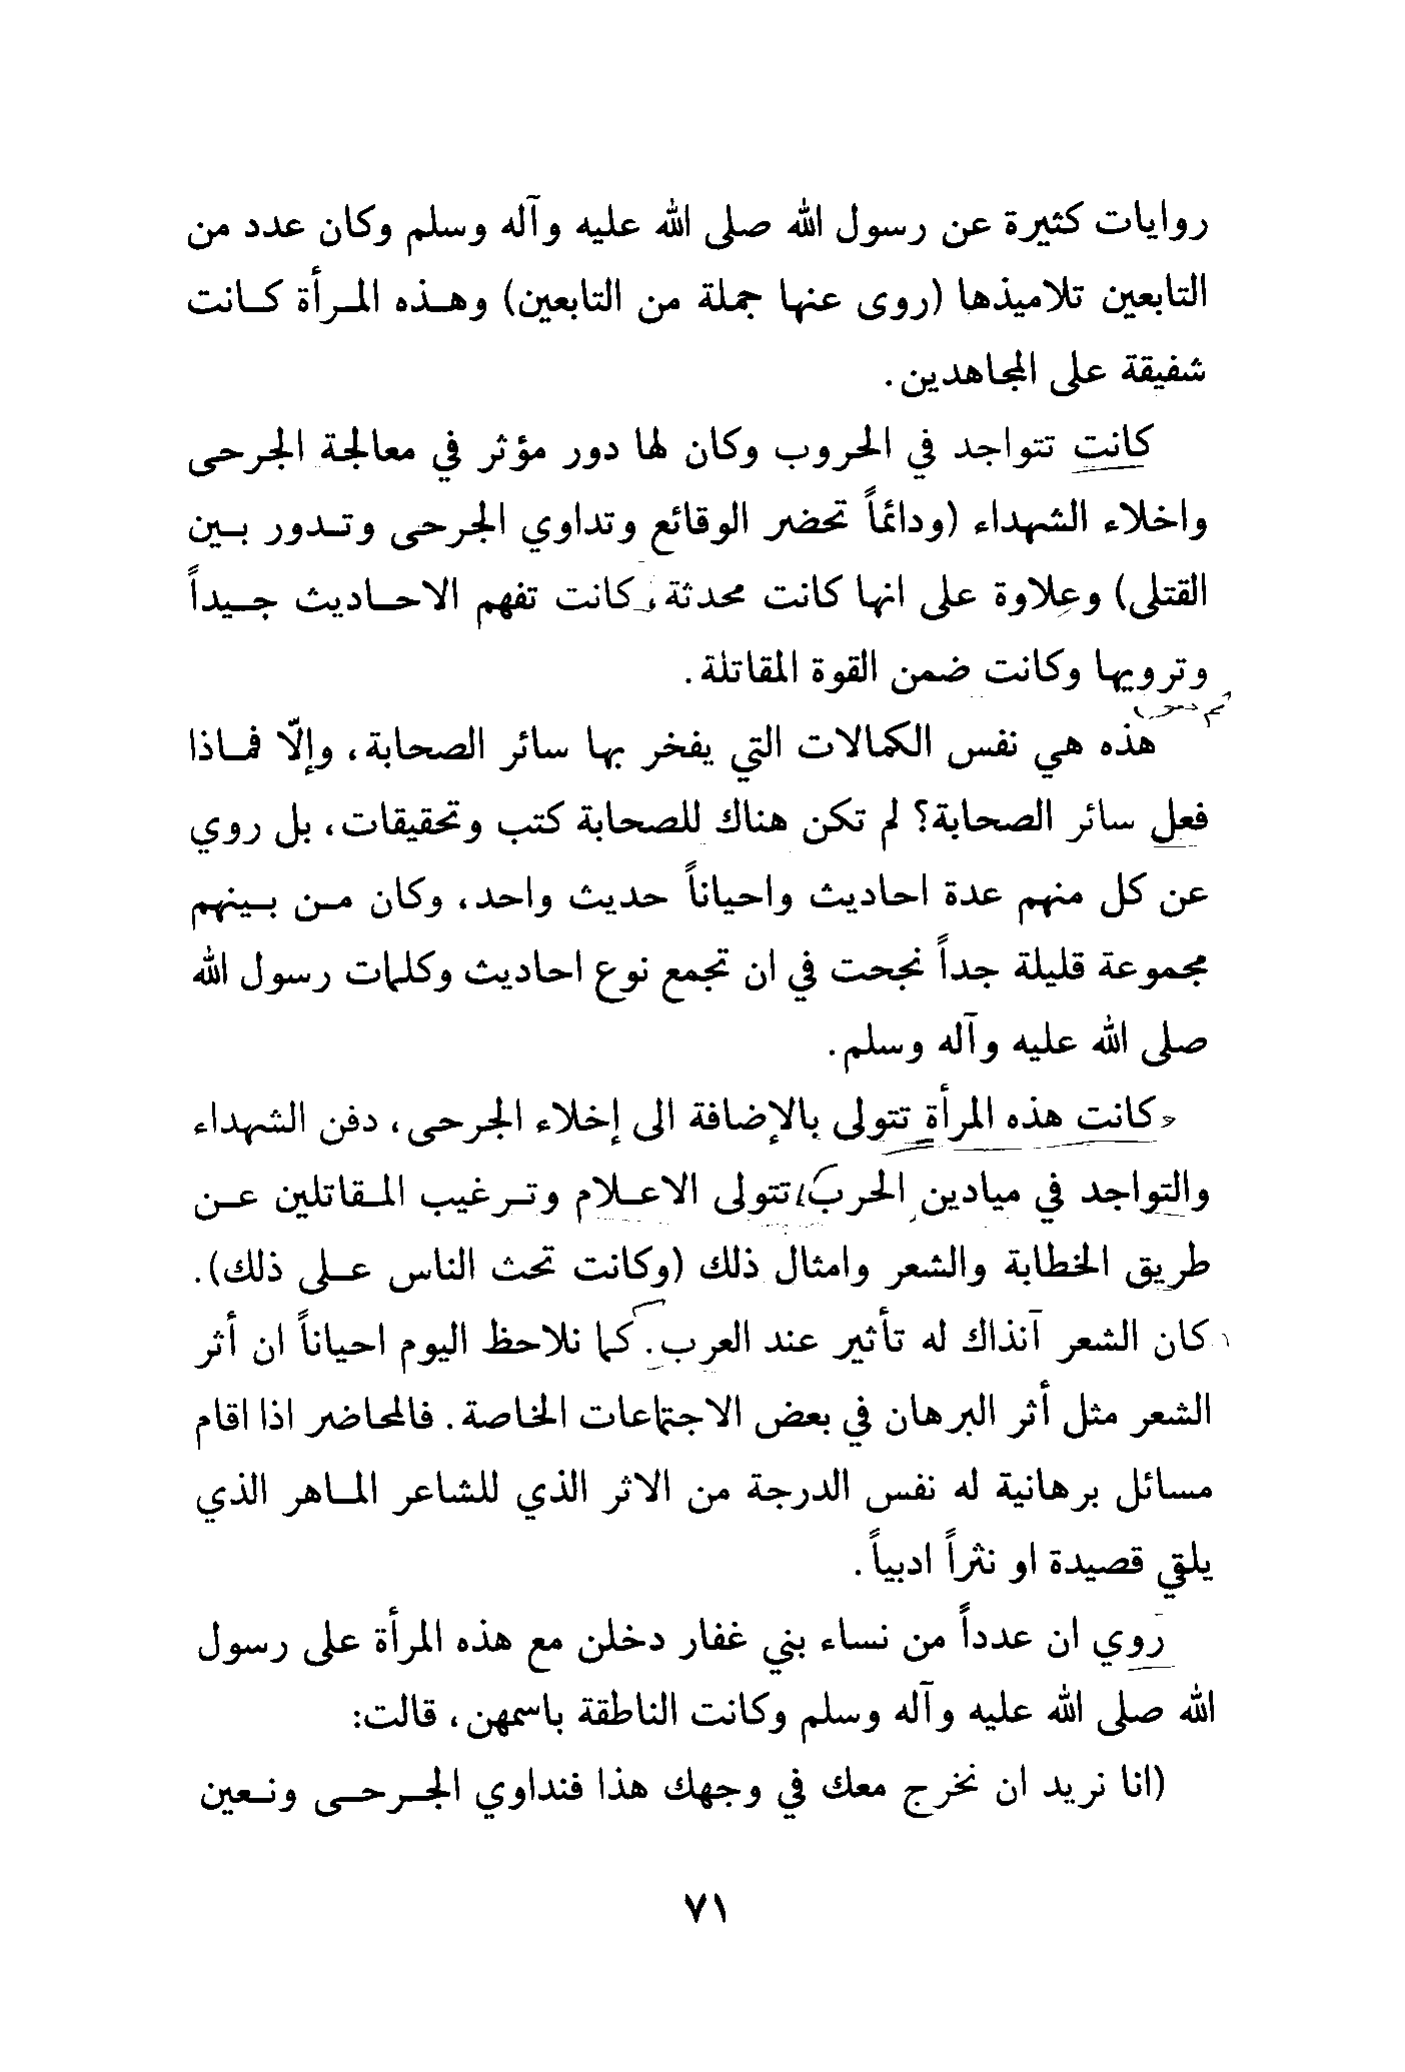 روايات كثيرة عن رسول الله صلى الله عليه وآله وسلم وكان عدد من
التابعين تلاميذها (روى عنها جملة من التابعين) وهذه المرأة كانت
شفيقة على المجاهدين.
كانت تتواجد في الحروب وكان لها دور مؤثر في معالجة الجرحى
واخلاء الشهداء (ودائماً تحضر الوقائع وتداوي الجرحى وتدور بين
القتلى) وعلاوة على انها كانت محدثة، كانت تفهم الاحاديث جيداً
وترويها وكانت ضمن القوة المقاتلة.
هذه هي نفس الكمالات التي يفخر بها سائر الصحابة، وإلّا فماذا
فعل سائر الصحابة؟ لم تكن هناك للصحابة كتب وتحقيقات، بل روي
عن كل منهم عدة احاديث واحياناً حديث واحد، وكان من بينهم
مجموعة قليلة جداً نجحت في ان تجمع نوع احاديث وكلمات رسول الله
صلى الله عليه وآله وسلم.
كانت هذه المرأة تتولى بالإضافة الى إخلاء الجرحى، دفن الشهداء
والتواجد في ميادين الحرب، تتولى الاعلام وترغيب المقاتلين عن
طريق الخطابة والشعر وامثال ذلك (وكانت تحث الناس على ذلك).
كان الشعر آنذاك له تأثير عند العرب. كما نلاحظ اليوم احياناً ان أثر
الشعر مثل أثر البرهان في بعض الاجتماعات الخاصة. فالمحاضر اذا اقام
مسائل برهانية له نفس الدرجة من الاثر الذي للشاعر الماهر الذي
يلقي قصيدة او نثراً ادبياً.
روي ان عدداً من نساء بني غفار دخلن مع هذه المرأة على رسول
الله صلى الله عليه وآله وسلم وكانت الناطقة باسمهن، قالت:
(انا نريد ان نخرج معك في وجهك هذا فنداوي الجرحى ونعين
٧١